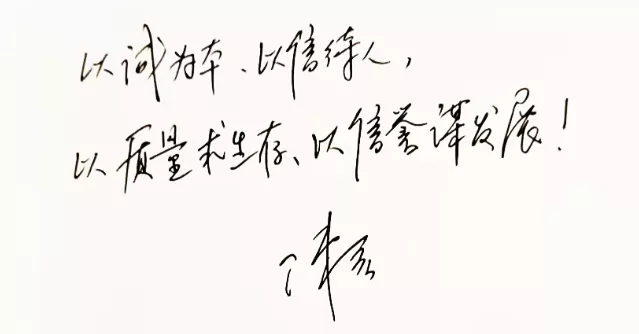 以诚为本、以信待人，
以质量求生存、以信誉谋发展！